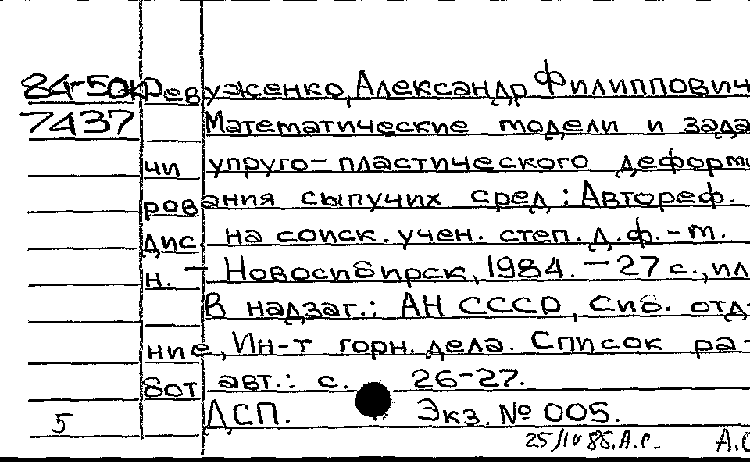 84-50к Ревуженко, Александр Филиппович
7437 Математические модели и зада
чи упруго-пластического деформи
рования сыпучих сред : Автореф.
дис. на соиск. учен. степ. д. ф.-м.
н. - Новосибирск, 1984. - 27 с., ил
В надзаг.: АН СССР, Сиб. отд-
ние, Ин-т горн. дела. Список ра-
бот авт.: с. 26-27.
5 ДСП. Экз. № 005.
25/IV 85. А.С. А.С